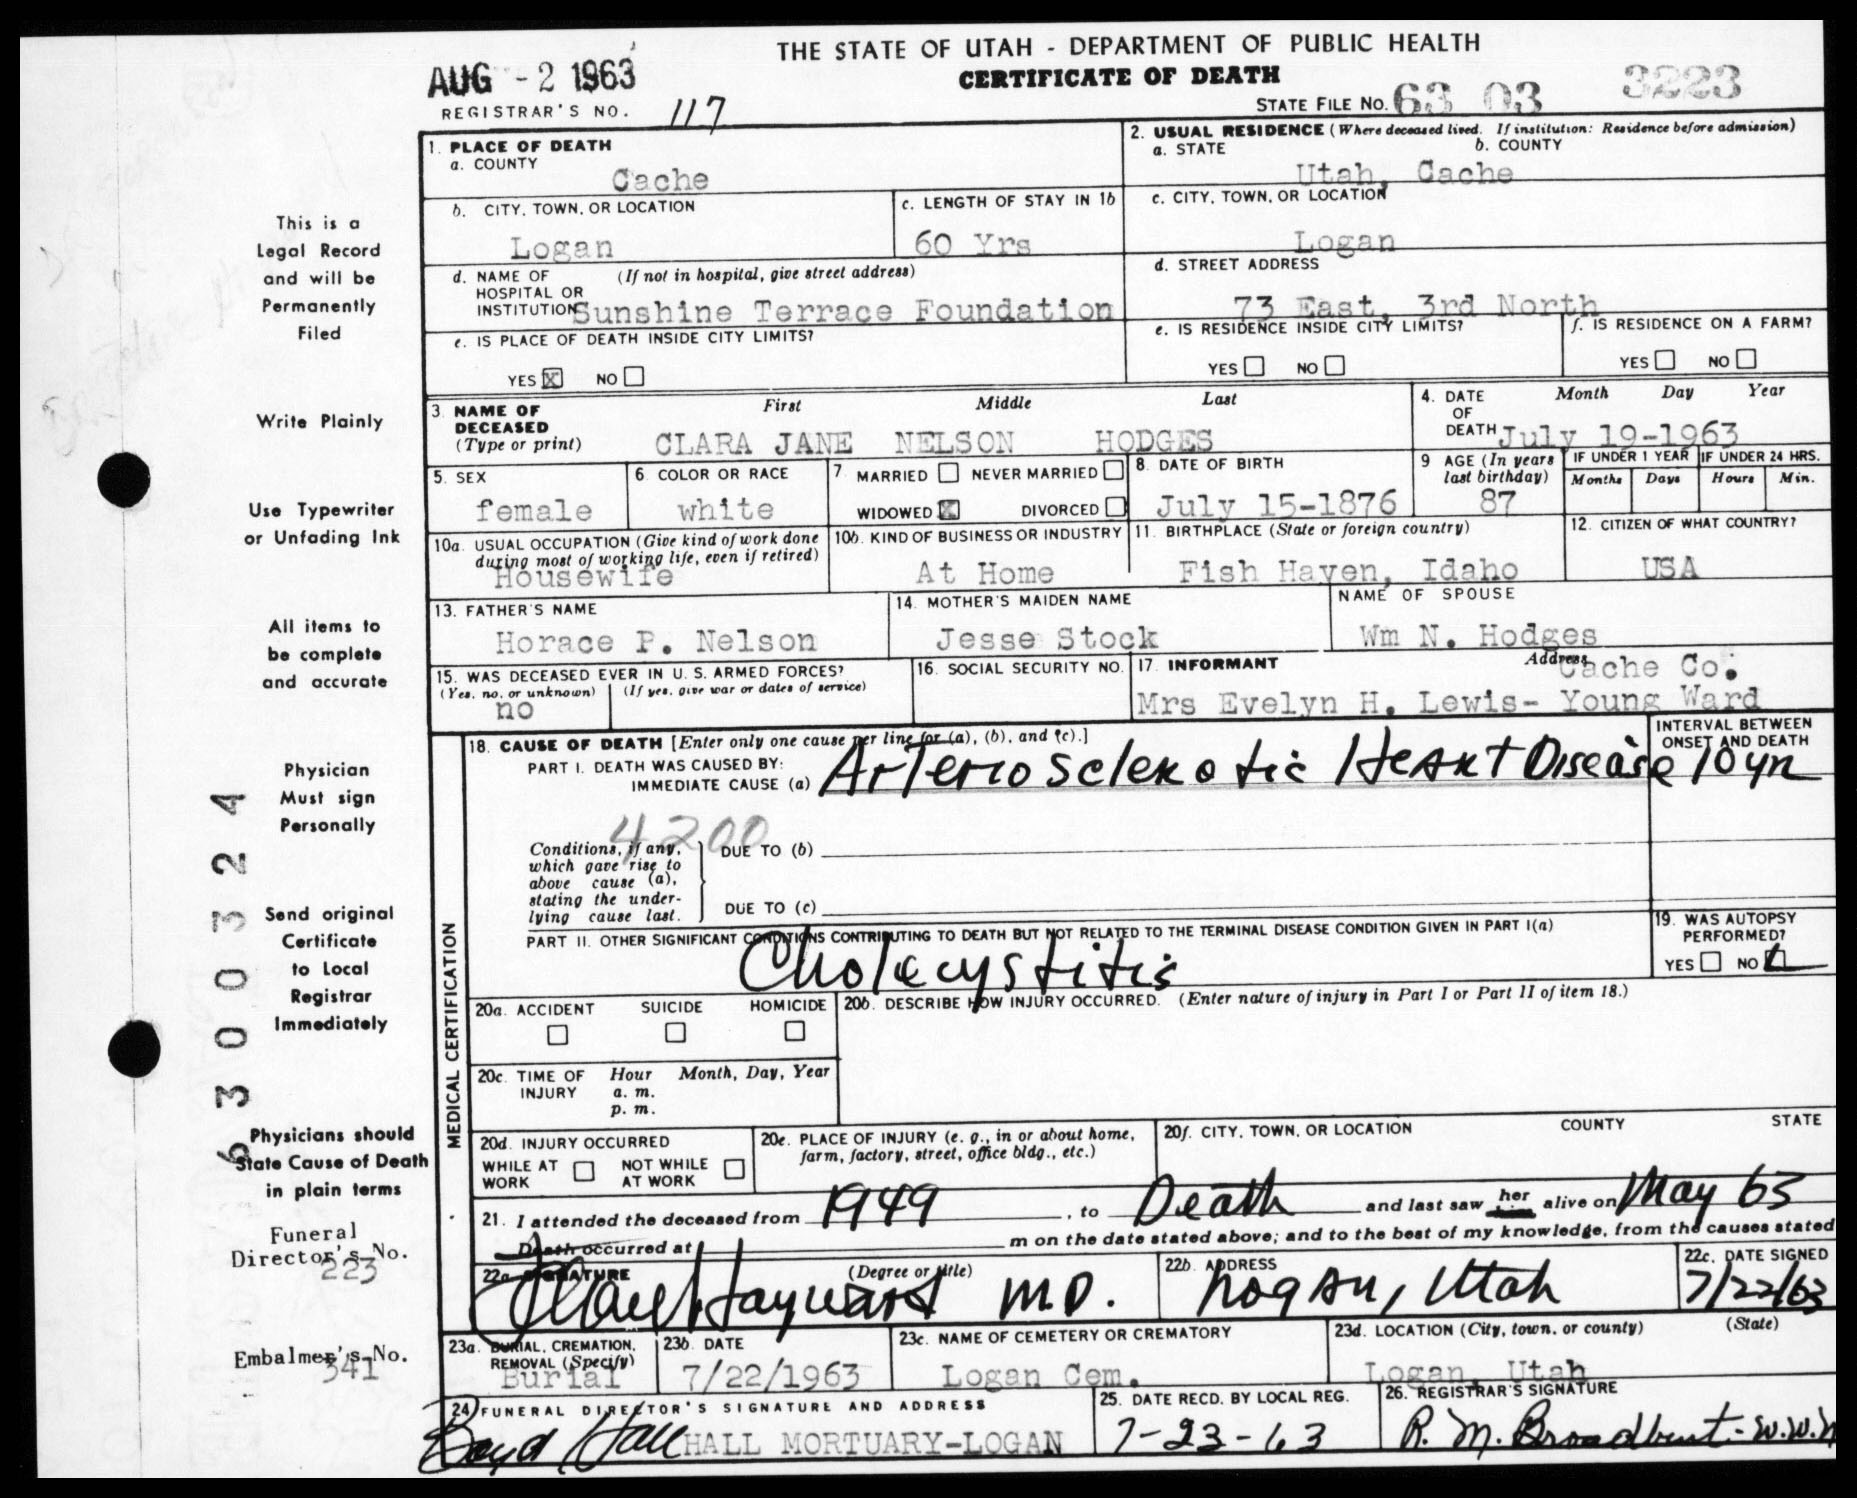 THE STATE OF UTAH - DEPARTMENT OF PUBLIC HEALTH
CERTIFICATE OF DEATH
AUG -2 1963
REGISTRAR'S NO. 117
STATE FILE NO. 63 03 3223
1. PLACE OF DEATH
a. COUNTY
Cache
2. USUAL RESIDENCE (Where deceased lived. If institution: Residence before admission)
a. STATE b. COUNTY
Utah, Cache
b. CITY, TOWN, OR LOCATION
Logan
c. LENGTH OF STAY IN 1b
60 Yrs
c. CITY, TOWN, OR LOCATION
Logan
d. NAME OF (If not in hospital, give street address)
HOSPITAL OR
INSTITUTION Sunshine Terrace Foundation
d. STREET ADDRESS
73 East, 3rd North
e. IS PLACE OF DEATH INSIDE CITY LIMITS?
YES X NO
e. IS RESIDENCE INSIDE CITY LIMITS?
YES NO
f. IS RESIDENCE ON A FARM?
YES NO
3. NAME OF First Middle Last
DECEASED
(Type or print) CLARA JANE NELSON HODGES
4. DATE Month Day Year
OF
DEATH July 19-1963
5. SEX
female
6. COLOR OR RACE
white
7 MARRIED NEVER MARRIED
WIDOWED X DIVORCED
8. DATE OF BIRTH
July 15-1876
9 AGE (In years
last birthday)
87
IF UNDER 1 YEAR IF UNDER 24 HRS.
Months Days Hours Min.
10a. USUAL OCCUPATION (Give kind of work done
during most of working life, even if retired)
Housewife
10b. KIND OF BUSINESS OR INDUSTRY
At Home
11. BIRTHPLACE (State or foreign country)
Fish Haven, Idaho
12. CITIZEN OF WHAT COUNTRY?
USA
13. FATHER'S NAME
Horace P. Nelson
14. MOTHER'S MAIDEN NAME
Jesse Stock
NAME OF SPOUSE
Wm N. Hodges
15. WAS DECEASED EVER IN U. S. ARMED FORCES?
(Yes, no, or unknown) (If yes, give war or dates of service)
no
16. SOCIAL SECURITY NO.
17. INFORMANT Address
Cache Co.
Mrs Evelyn H. Lewis- Young Ward
MEDICAL CERTIFICATION
18. CAUSE OF DEATH [Enter only one cause per line for (a), (b), and (c).]
PART I. DEATH WAS CAUSED BY:
IMMEDIATE CAUSE (a) Arteriosclerotic Heart Disease
INTERVAL BETWEEN
ONSET AND DEATH
10 yr
4200
Conditions, if any,
which gave rise to
above cause (a),
stating the under-
lying cause last.
DUE TO (b)
DUE TO (c)
PART II. OTHER SIGNIFICANT CONDITIONS CONTRIBUTING TO DEATH BUT NOT RELATED TO THE TERMINAL DISEASE CONDITION GIVEN IN PART I(a)
Cholecystitis
19. WAS AUTOPSY
PERFORMED?
YES NO
20a. ACCIDENT SUICIDE HOMICIDE
20b. DESCRIBE HOW INJURY OCCURRED. (Enter nature of injury in Part I or Part II of item 18.)
20c. TIME OF Hour Month, Day, Year
INJURY a. m.
p. m.
20d. INJURY OCCURRED
WHILE AT WORK NOT WHILE AT WORK
20e. PLACE OF INJURY (e. g., in or about home,
farm, factory, street, office bldg., etc.)
20f. CITY, TOWN, OR LOCATION COUNTY STATE
21. I attended the deceased from 1949, to Death and last saw her alive on May 63
Death occurred at m on the date stated above; and to the best of my knowledge, from the causes stated
22a. SIGNATURE (Degree or title)
Hayward M.D.
22b. ADDRESS
Logan, Utah
22c. DATE SIGNED
7/22/63
23a. BURIAL, CREMATION,
REMOVAL (Specify)
Burial
23b. DATE
7/22/1963
23c. NAME OF CEMETERY OR CREMATORY
Logan Cem.
23d. LOCATION (City, town, or county) (State)
Logan, Utah
24 FUNERAL DIRECTOR'S SIGNATURE AND ADDRESS
Boyd Hall HALL MORTUARY-LOGAN
25. DATE RECD. BY LOCAL REG.
7-23-63
26. REGISTRAR'S SIGNATURE
R. M. Broadbent - W.W.
This is a
Legal Record
and will be
Permanently
Filed
Write Plainly
Use Typewriter
or Unfading Ink
All items to
be complete
and accurate
Physician
Must sign
Personally
Send original
Certificate
to Local
Registrar
Immediately
Physicians should
State Cause of Death
in plain terms
Funeral
Director's No.
223
Embalmer's No.
341
6300324